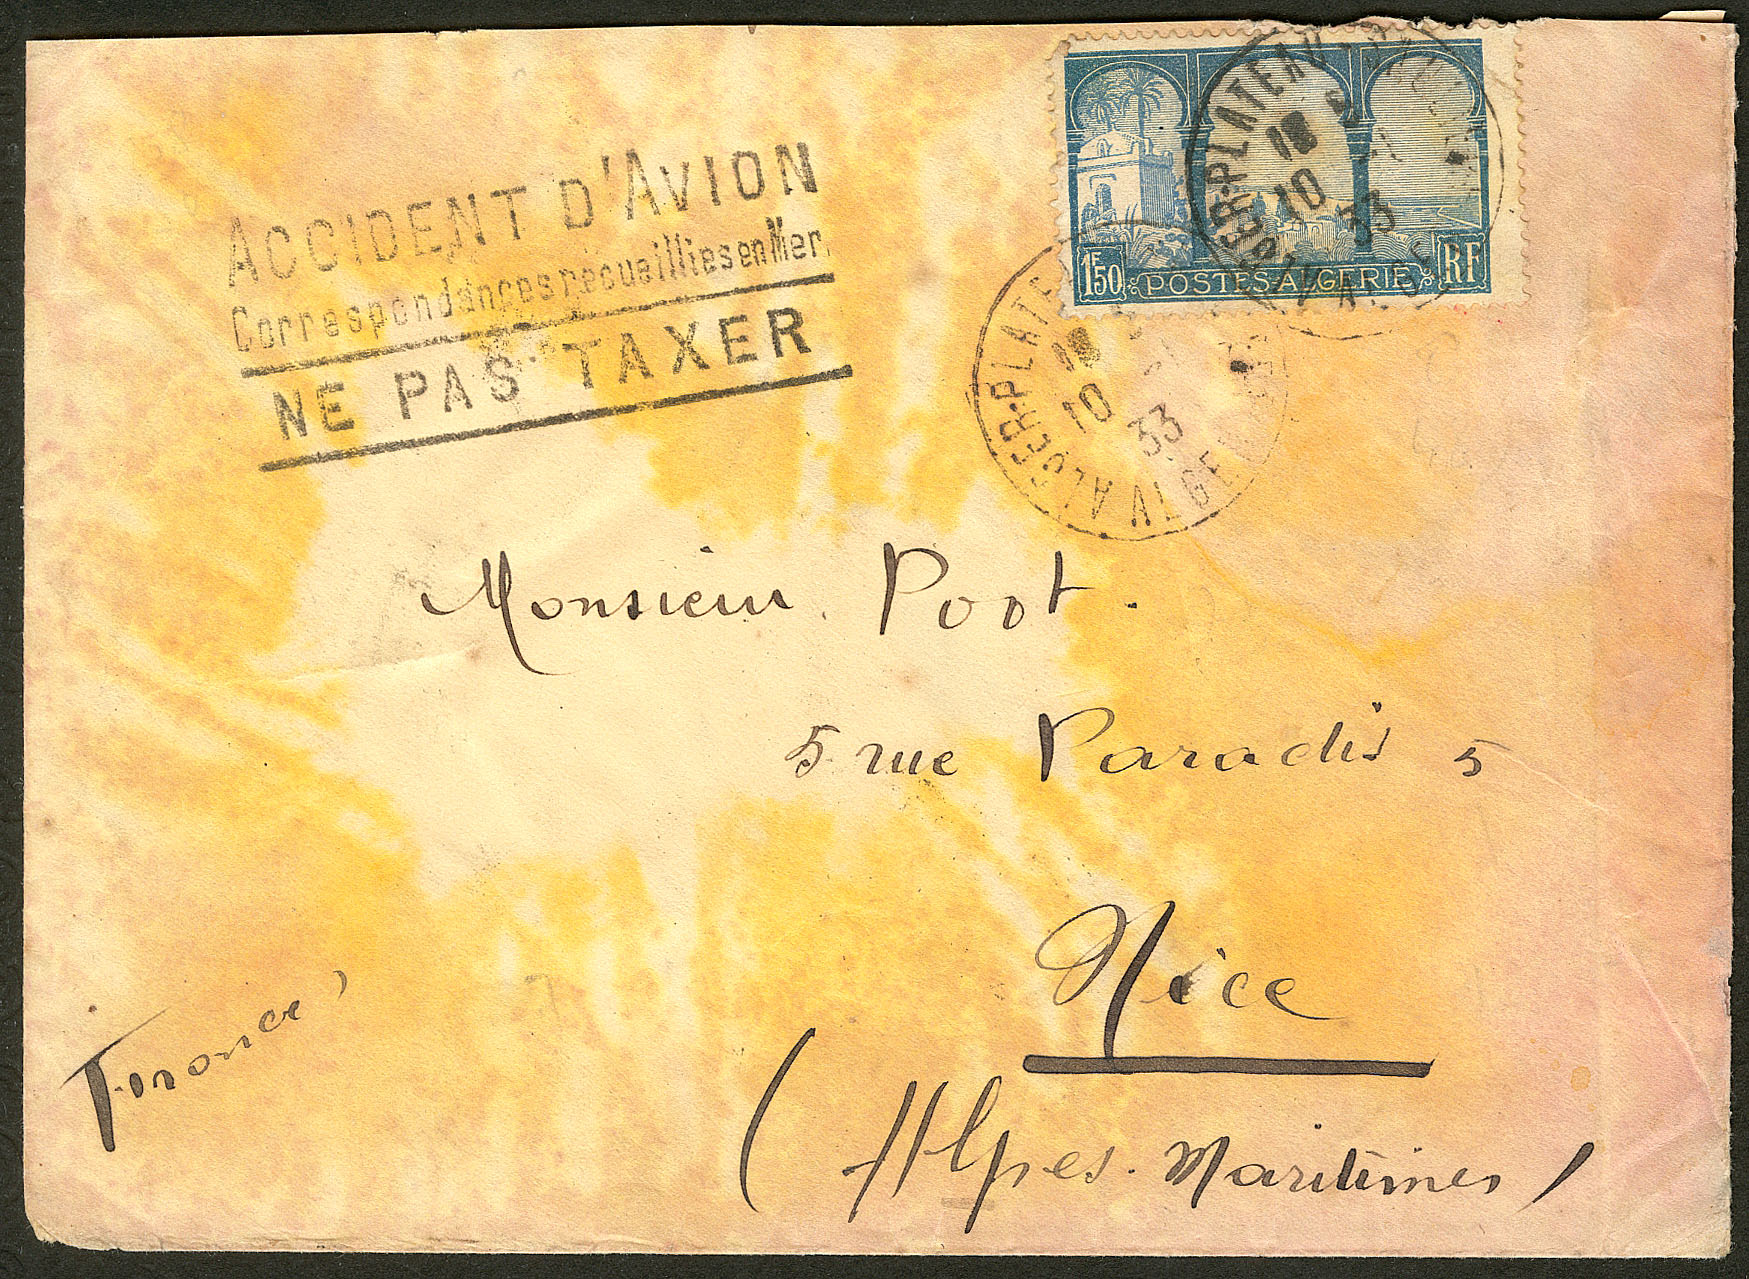 ACCIDENT D'AVION
Correspondances recueillies en Mer.
NE PAS TAXER
1F50 POSTES-ALGERIE RF
ALGER-PLATEAU
10
33
ALGER-PLATE
10
33
Monsieur Poot.
5 rue Paradis 5
Nice
(Alpes-Maritimes)
France